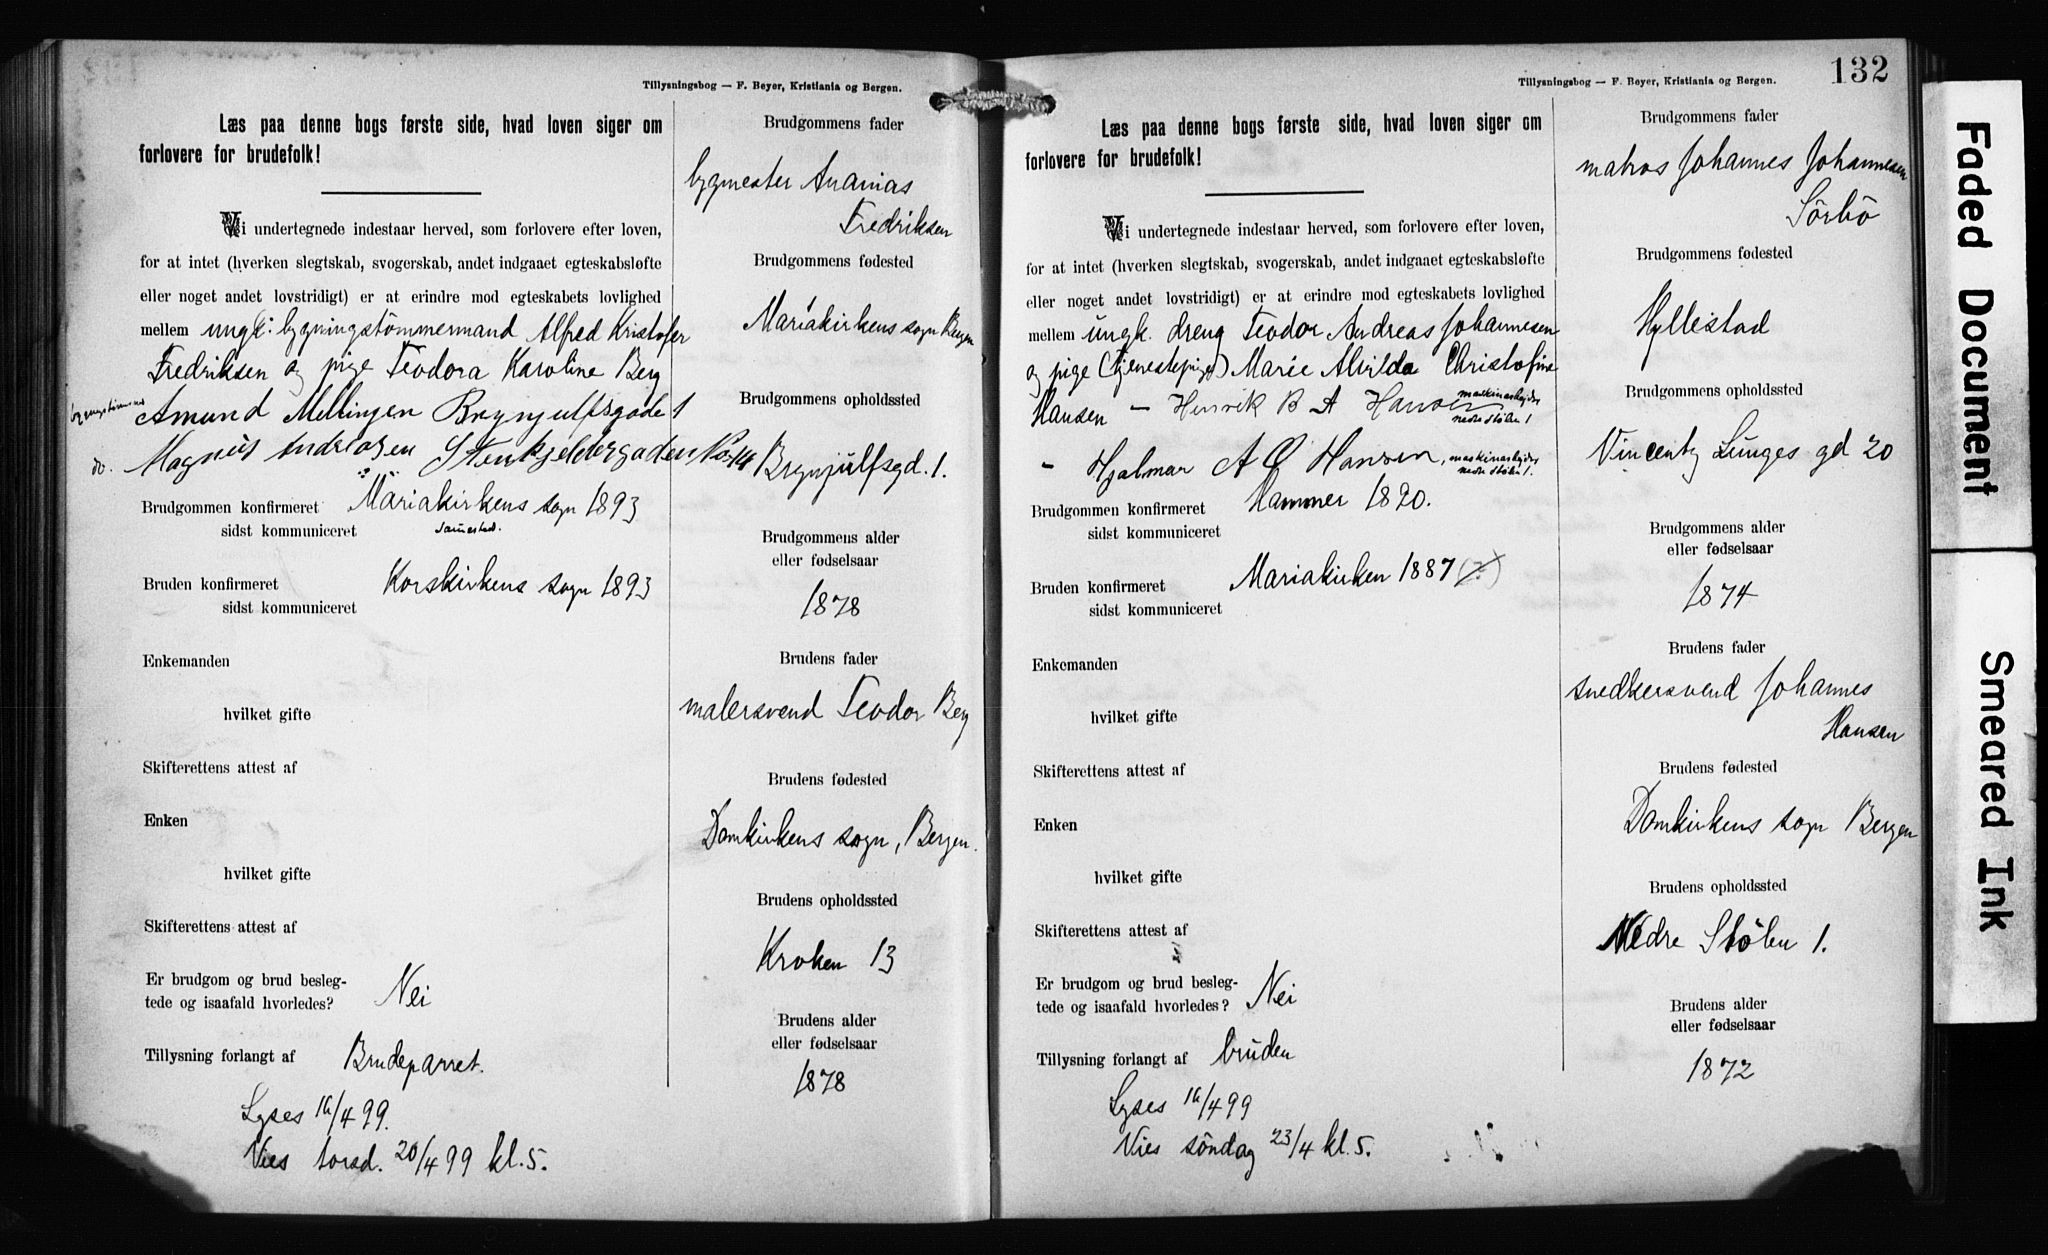 Tillysningsbog — F. Beyer, Kristiania og Bergen.
Læs paa denne bogs første side, hvad loven siger om
forlovere for brudefolk!
Vi undertegnede indestaar herved, som forlovere efter loven,
for at intet (hverken slegtskab, svogerskab, andet indgaaet egteskabsløfte
eller noget andet lovstridigt) er at erindre mod egteskabets lovlighed
mellem ungk: bygningstömmermand Alfred Kristofer
Fredriksen og pige Teodora Karoline Berg
Amund Mellingen Brynjulfsgade 1
do. Magnus Andreasen Stenkjeldergaden No 14
Brudgommen konfirmeret Mariakirkens sogn 1893
sidst kommuniceret sammesteds.
Bruden konfirmeret Korskirkens sogn 1893
sidst kommuniceret
Enkemanden
hvilket gifte
Skifterettens attest af
Enken
hvilket gifte
Skifterettens attest af
Er brudgom og brud besleg-
tede og isaafald hvorledes? Nei
Tillysning forlangt af Brudeparret.
Lyses 16/4 99.
Vies torsd. 20/4 99 kl. 5.
Brudgommens fader
bygmester Ananias
Fredriksen
Brudgommens fødested
Mariakirkens sogn Bergen
Brudgommens opholdssted
Brynjulfsgd. 1.
Brudgommens alder
eller fødselsaar
1878
Brudens fader
malersvend Teodor Berg
Brudens fødested
Domkirkens sogn, Bergen.
Brudens opholdssted
Kroken 13
Brudens alder
eller fødselsaar
1878
Tillysningsbog — F. Beyer, Kristiania og Bergen.
132
Læs paa denne bogs første side, hvad loven siger om
forlovere for brudefolk!
Vi undertegnede indestaar herved, som forlovere efter loven,
for at intet (hverken slegtskab, svogerskab, andet indgaaet egteskabsløfte
eller noget andet lovstridigt) er at erindre mod egteskabets lovlighed
mellem ungk. dreng Teodor Andreas Johannesen
og pige (tjenestepige) Marie Alvilda Christofine
Hansen — Henrik B A Hansen maskinarbeider
nedre Stölen 1
— Hjalmar A Ø Hansen, maskinarbeider
nedre Stölen 1.
Brudgommen konfirmeret Hammer 1890.
sidst kommuniceret
Bruden konfirmeret Mariakirken 1887 (?)
sidst kommuniceret
Enkemanden
hvilket gifte
Skifterettens attest af
Enken
hvilket gifte
Skifterettens attest af
Er brudgom og brud besleg-
tede og isaafald hvorledes? Nei
Tillysning forlangt af bruden
Lyses 16/4 99
Vies söndag 23/4 kl. 5.
Brudgommens fader
matros Johannes Johannesen
Sörbö
Brudgommens fødested
Hyllestad
Brudgommens opholdssted
Vincents Lunges gd 20
Brudgommens alder
eller fødselsaar
1874
Brudens fader
snedkersvend Johannes
Hansen
Brudens fødested
Domkirkens sogn Bergen
Brudens opholdssted
Nedre Stölen 1.
Brudens alder
eller fødselsaar
1872
Faded Document
Smeared Ink